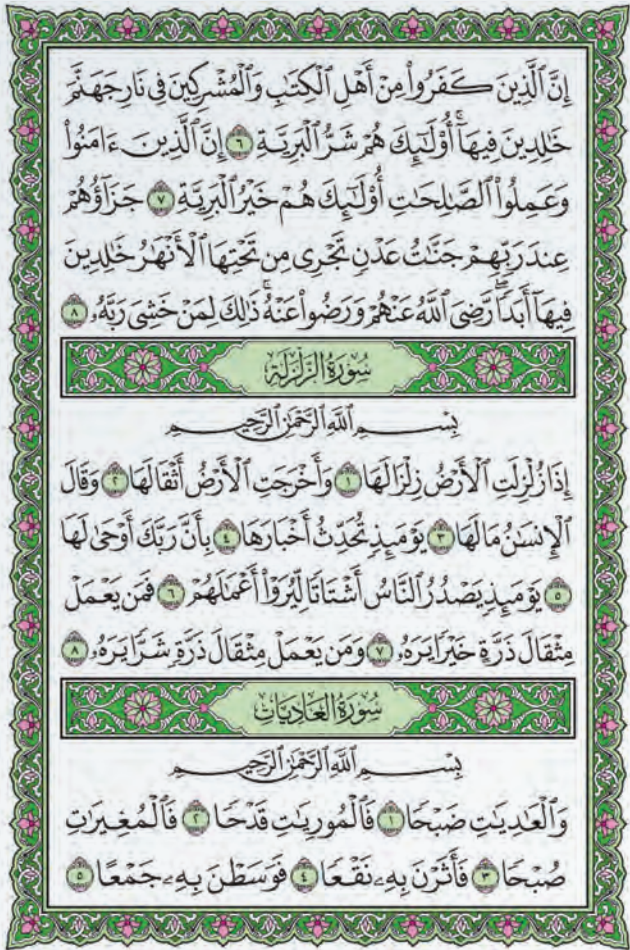 إِنَّ ٱلَّذِينَ كَفَرُوا۟ مِنْ أَهْلِ ٱلْكِتَٰبِ وَٱلْمُشْرِكِينَ فِى نَارِ جَهَنَّمَ
خَٰلِدِينَ فِيهَآ ۚ أُو۟لَٰٓئِكَ هُمْ شَرُّ ٱلْبَرِيَّةِ ٦ إِنَّ ٱلَّذِينَ ءَامَنُوا۟
وَعَمِلُوا۟ ٱلصَّٰلِحَٰتِ أُو۟لَٰٓئِكَ هُمْ خَيْرُ ٱلْبَرِيَّةِ ٧ جَزَآؤُهُمْ
عِندَ رَبِّهِمْ جَنَّٰتُ عَدْنٍ تَجْرِى مِن تَحْتِهَا ٱلْأَنْهَٰرُ خَٰلِدِينَ
فِيهَآ أَبَدًا ۖ رَّضِىَ ٱللَّهُ عَنْهُمْ وَرَضُوا۟ عَنْهُ ۚ ذَٰلِكَ لِمَنْ خَشِىَ رَبَّهُۥ ٨
سُورَةُ الزَّلْزَلَةِ
بِسْمِ ٱللَّهِ ٱلرَّحْمَٰنِ ٱلرَّحِيمِ
إِذَا زُلْزِلَتِ ٱلْأَرْضُ زِلْزَالَهَا ١ وَأَخْرَجَتِ ٱلْأَرْضُ أَثْقَالَهَا ٢ وَقَالَ
ٱلْإِنسَٰنُ مَا لَهَا ٣ يَوْمَئِذٍ تُحَدِّثُ أَخْبَارَهَا ٤ بِأَنَّ رَبَّكَ أَوْحَىٰ لَهَا
٥ يَوْمَئِذٍ يَصْدُرُ ٱلنَّاسُ أَشْتَاتًا لِّيُرَوْا۟ أَعْمَٰلَهُمْ ٦ فَمَن يَعْمَلْ
مِثْقَالَ ذَرَّةٍ خَيْرًا يَرَهُۥ ٧ وَمَن يَعْمَلْ مِثْقَالَ ذَرَّةٍ شَرًّا يَرَهُۥ ٨
سُورَةُ العَادِيَاتِ
بِسْمِ ٱللَّهِ ٱلرَّحْمَٰنِ ٱلرَّحِيمِ
وَٱلْعَٰدِيَٰتِ ضَبْحًا ١ فَٱلْمُورِيَٰتِ قَدْحًا ٢ فَٱلْمُغِيرَٰتِ
صُبْحًا ٣ فَأَثَرْنَ بِهِۦ نَقْعًا ٤ فَوَسَطْنَ بِهِۦ جَمْعًا ٥